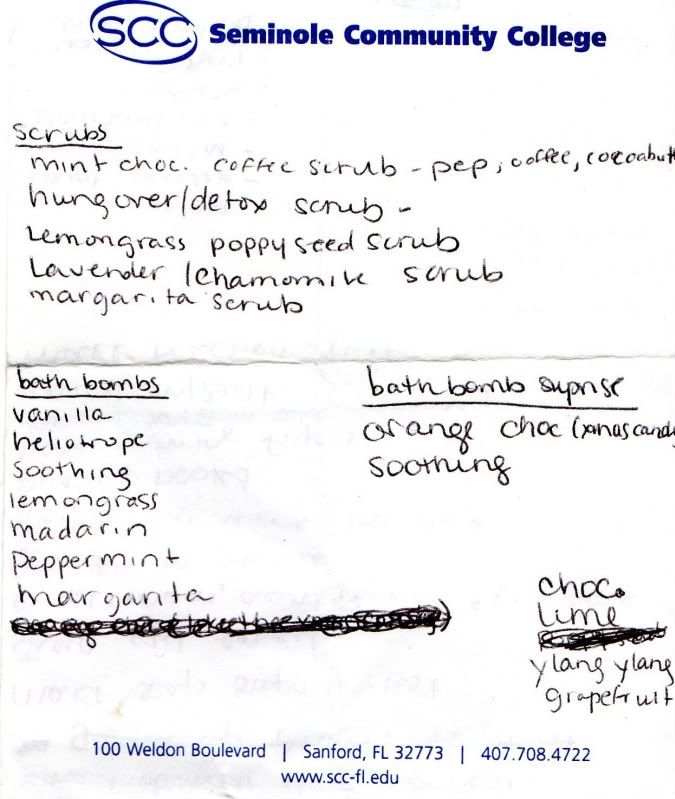 SCC Seminole Community College
scrubs
mint choc. coffee scrub - pep, coffee, cocoabutt
hungover/detox scrub -
Lemongrass poppyseed scrub
Lavender/chamomile scrub
margarita scrub
bath bombs
vanilla
heliotrope
soothing
lemongrass
madarin
peppermint
margarita
bath bomb suprise
orange choc (xmas candy
soothing
choc.
Lime
ylang ylang
grapefruit
100 Weldon Boulevard | Sanford, FL 32773 | 407.708.4722
www.scc-fl.edu